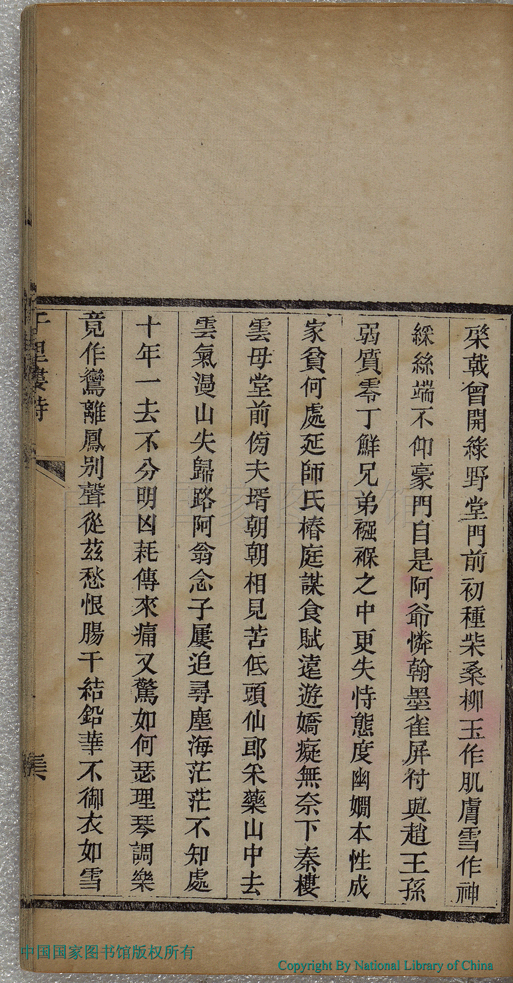 棨戟曾開綠野堂門前初種柴桑柳玉作肌膚雪作神
綵絲端不仰豪門自是阿爺憐翰墨雀屏付與趙王孫
弱質零丁鮮兄弟襁褓之中更失恃態度幽嫻本性成
家貧何處延師氏椿庭謀食賦遠遊嬌癡無奈下秦樓
雲母堂前傍夫壻朝朝相見苦低頭仙郎采藥山中去
雲氣漫山失歸路阿翁念子屢追尋塵海茫茫不知處
十年一去不分明凶耗傳來痛又驚如何瑟理琴調樂
竟作鸞離鳳别聲從茲愁恨腸千結鉛華不御衣如雪
中国国家图书馆版权所有
Copyright By National Library of China